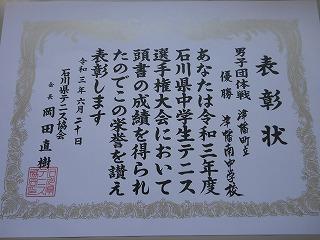 表彰状
男子団体戦
優勝 津幡町立津幡南中学校
あなたは令和三年度
石川県中学生テニス
選手権大会において
頭書の成績を得られ
たのでこの栄誉を讃え
表彰します
令和三年六月二十日
石川県テニス協会
会長 岡田直樹